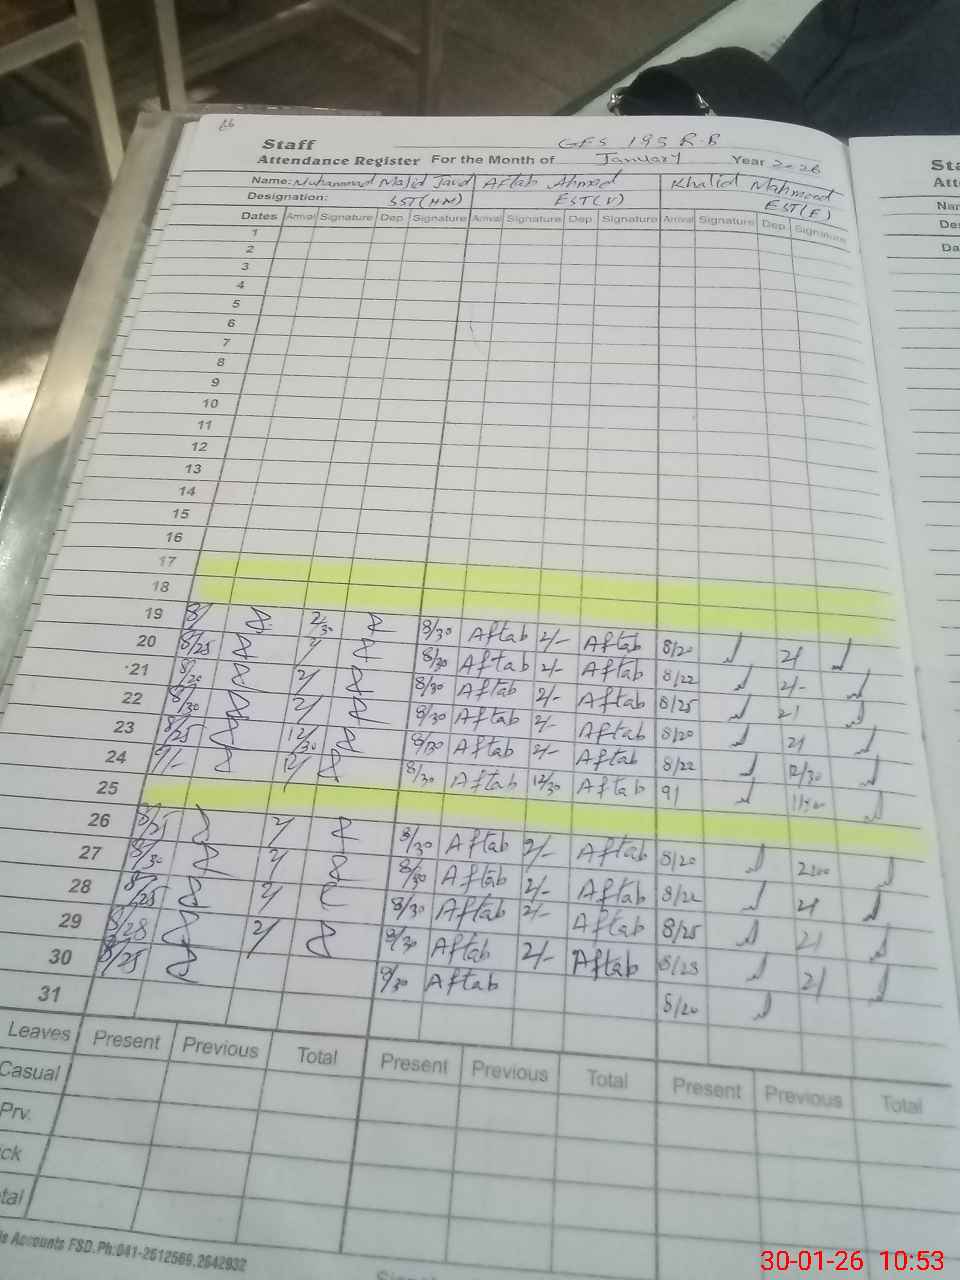 Staff GFS 195 R.B
Attendance Register For the Month of January Year 2026
Name: Muhammad Majid Javed Aftab Ahmed Khalid Mahmood
Designation: SST(HM) EST(V) EST(E)
Dates Arrival Signature Dep Signature Arrival Signature Dep Signature Arrival Signature Dep. Signature
1
2
3
4
5
6
7
8
9
10
11
12
13
14
15
16
17
18
19 8/ 2/30 8/30 Aftab 2/- Aftab 8/20 2/
20 8/25 2/ 8/30 Aftab 2/- Aftab 8/22 2/-
21 8/20 2/ 8/30 Aftab 2/- Aftab 8/25 2/
22 8/30 2/ 8/30 Aftab 2/- Aftab 8/20 2/
23 8/25 12/30 8/30 Aftab 2/- Aftab 8/22 12/30
24 9/- 12/ 8/30 Aftab 12/30 Aftab 9/
25
26 8/25 2/ 8/30 Aftab 2/- Aftab 8/20 2200
27 8/30 2/ 8/30 Aftab 2/- Aftab 8/22 2/
28 8/25 2/ 8/30 Aftab 2/- Aftab 8/25 2/
29 8/28 2/ 8/30 Aftab 2/- Aftab 8/25 2/
30 8/25 8/30 Aftab 8/20
31
Leaves Present Previous Total Present Previous Total Present Previous Total
Casual
Prv.
ck
tal
is Accounts FSD.Ph:041-2612569.2642932
Sta
Att
Nar
Des
Da
30-01-26 10:53